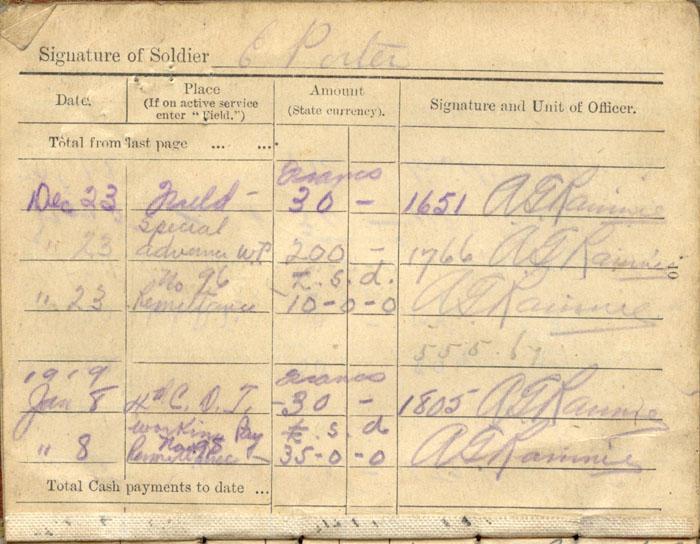 Signature of Soldier E Porter
Date. Place Amount Signature and Unit of Officer.
(If on active service (State currency).
enter "Field.")
Total from last page ... ....
Francs
Dec 23 Field - 30 - 1651 AGRainnie
Special
" 23 advance W.P. 200 - 1766 AGRainnie
No 96 £. s. d.
" 23 Remittance 10-0-0 AGRainnie
10
555.67
1919 Francs
Jan 8 C. D. T. -30 - 1805 AGRainnie
Working Pay £. s. d
" 8 Remittance - 35-0-0 AGRainnie
Total Cash payments to date ...